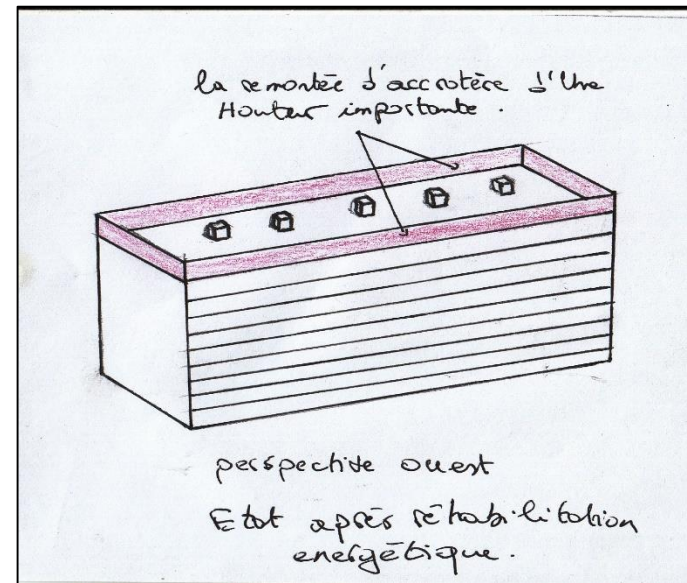 la remontée d'accrotère d'Une
Hauteur importante.
perspective ouest
Etat après réhabilitation
energétique.